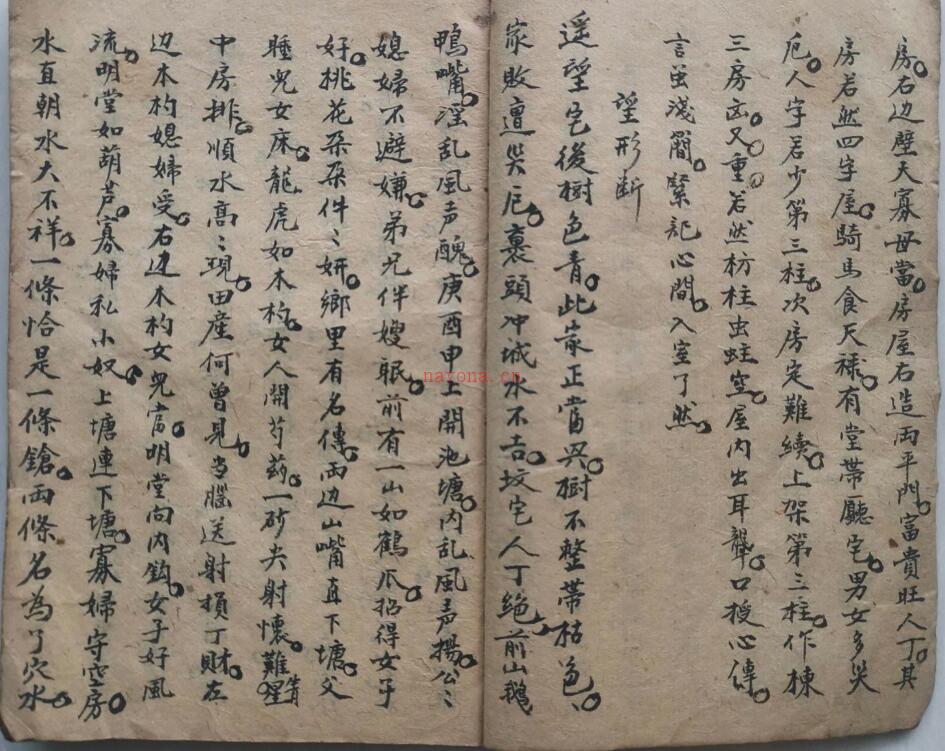 房。右边壁天寡母當。房屋右造両平門。富貴旺人丁。其
房若然四字屋。騎馬食天禄。有堂帶廳宅。男女多災
厄。人字若少第三柱。次房定難續。上架第三柱。作棟
三房凶。又重。若然枋柱虫蛀空。屋内出耳聾。口授心傳。
言虽淺簡。緊記心間。入室了然。
望形断
遥望宅後樹色青。此家正當兴。樹不整帶枯色、
家敗遭災厄。裹頭冲城水不吉。坟宅人丁绝。前山鵝
鴨嘴。淫乱風声醜。庚酉申上開池塘。内乱風声揚。公〻
媳婦不避嫌。弟兄伴嫂眠。前有一山如鶴爪。招得女子
好。桃花朶朶件〻妍。鄉里有名傳。両边山嘴直下塘。父
睡児女床。龍虎如木杓。女人開芍药。一砂尖射懷。難
中房排。順水高〻現。田産何曾見。当腦送射損丁財。左
边木杓媳婦受。右边木杓女児當。明堂向内鈎。女子好風
流。明堂如葫芦。寡婦私小奴。上塘連下塘。寡婦守空房
水直朝水大不祥。一條恰是一條鎗。両條名為了穴水。
nazona.cn